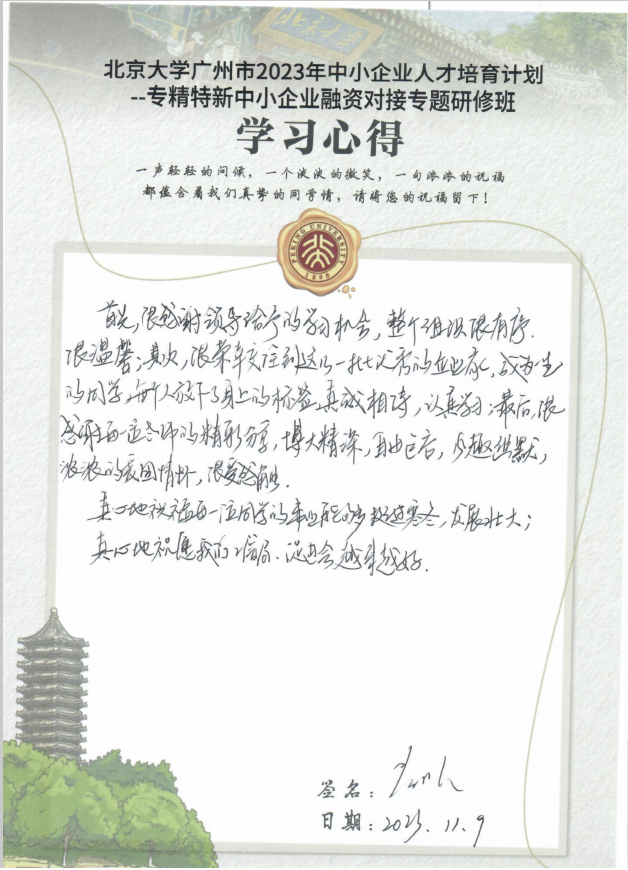 北京大学广州市2023年中小企业人才培育计划
--专精特新中小企业融资对接专题研修班
学习心得
一声轻轻的问候，一个淡淡的微笑，一句浓浓的祝福
都蕴含着我们真挚的同学情，请将您的祝福留下！
PEKING UNIVERSITY
1898
首先，很感谢领导给予的学习机会，整个组织很有序.
很温馨；其次，很荣幸结到这一批优秀的企业家，成为一生
的同学，每个人放下了身上的标签，真诚相待，认真学习；最后，很
感谢每一位老师的精彩分享，博大精深，风趣幽默，
浓浓的家国情怀，很受感触.
真心地祝福每一位同学的事业能够挺过寒冬，发展壮大；
真心地祝愿我们工信局、促进会越来越好.
签名：
日期：2023.11.9